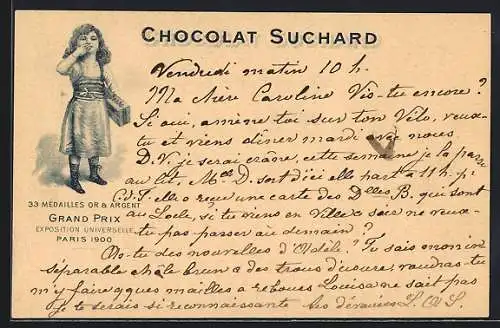 CHOCOLAT SUCHARD
Vendredi matin 10 h.
Ma chère Caroline Vis-tu encore?
Si oui, amène toi sur ton Vélo, veux-
tu et viens dîner mardi avec nous
D.V. je serai crâne, cette semaine je la passe
au lit, Mlle D. sort d'ici elle part à 11 h. p.
elle a reçu une carte des Dlles B. qui sont
au Locle, si tu viens en Ville ce soir ne veux-
tu pas passer au demain?
33 MÉDAILLES OR & ARGENT
GRAND PRIX
EXPOSITION UNIVERSELLE
PARIS 1900
As-tu des nouvelles d'Adèle? Tu sais mon in
séparable châle brun a des trous d'usure, voudras-tu
m'y faire qques mailles à rebours Louisa ne sait pas
je te serais si reconnaissante